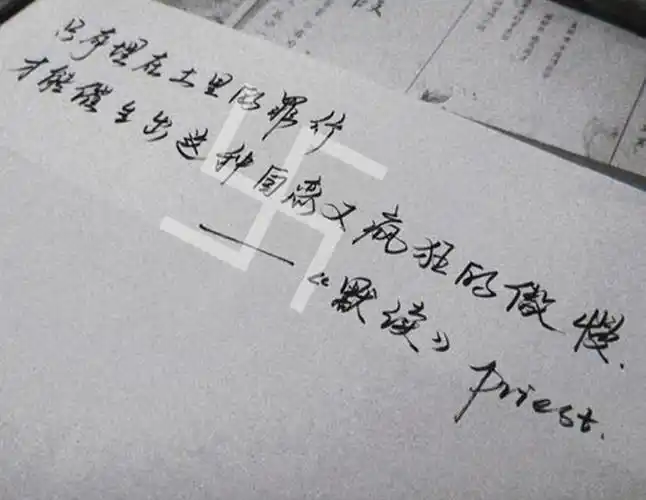 只有埋在土里的罪行
才能催生出这种固恋又疯狂的傲慢.
——《默读》
priest.